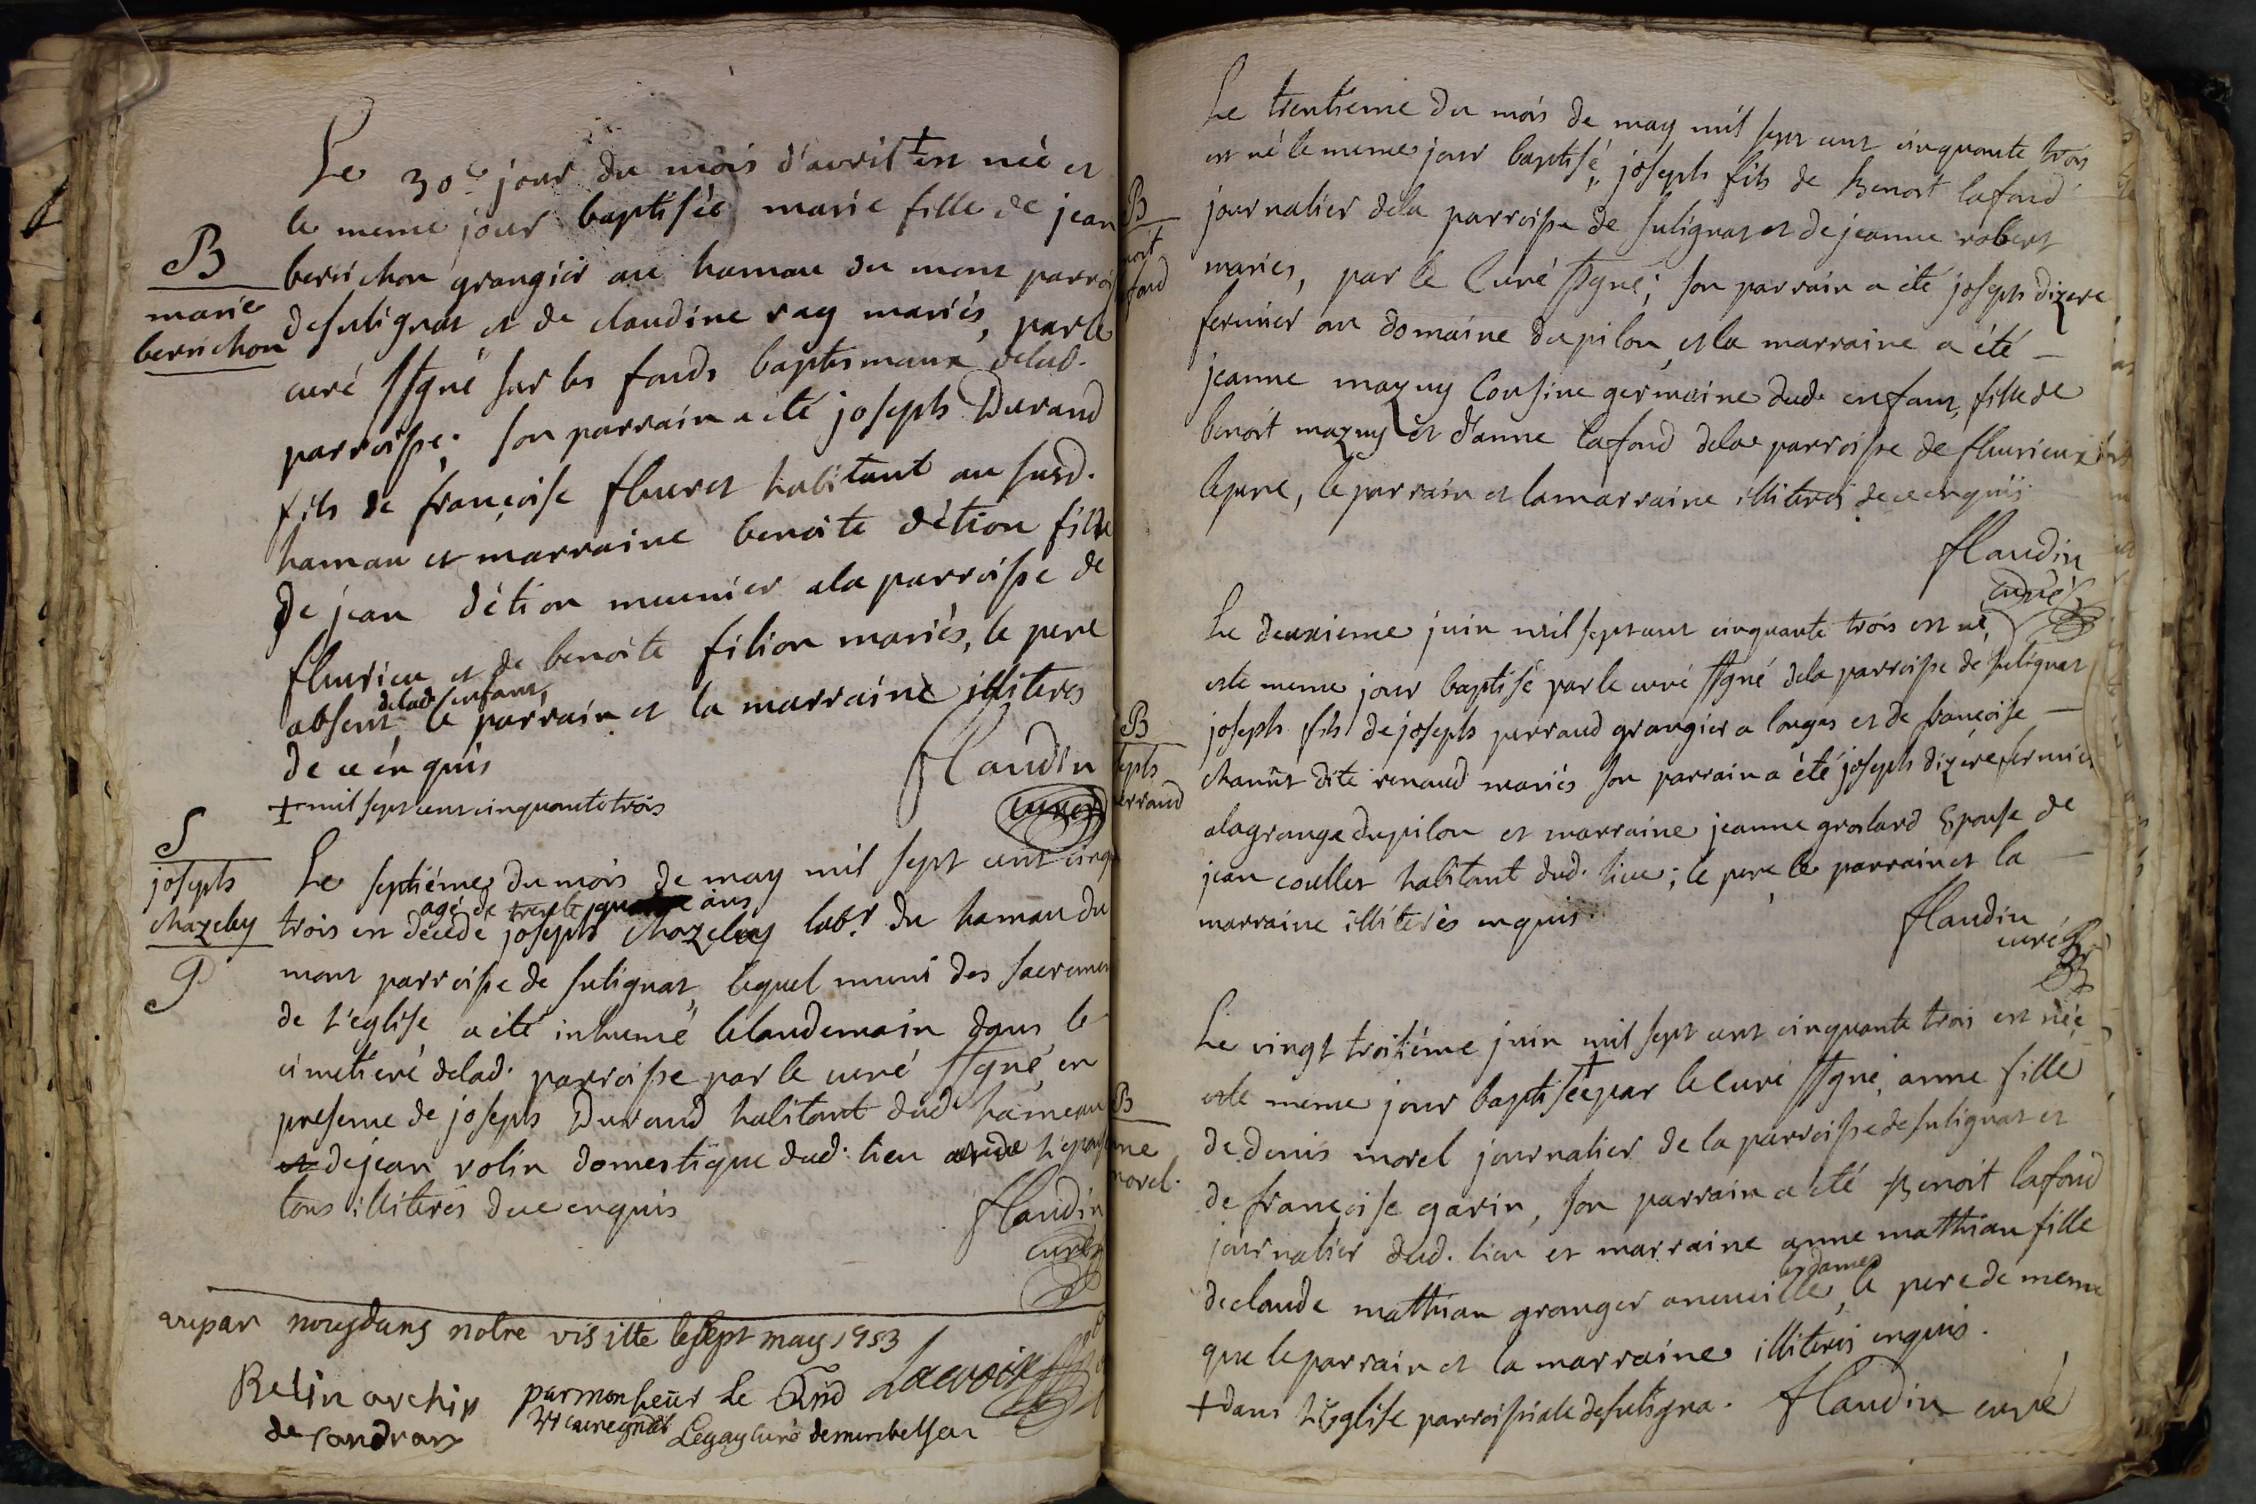 Le 30e jour du mois d'avril + est née et
le meme jour baptisée marie fille de jean
B
berrichon grangier au hamau du mont parroi
marie
berrichon
desulignat et de claudine ray mariés, par le
curé ssigné sur les fonds baptismaux delad.
parroisse; son parrain a été joseph Durand
fils de françoise fleuret habitant au susd.
hamau et marraine benoite détion fille
De jean détion meunier a la parroisse de
fleurieu et de benoite filion mariés, le pere
delad. enfant,
absent le parrain et la marraine illiteres
de ce enquis
flandin
curé
+ mil sept cent cinquante trois
S
joseph
chazeley
P
Le septiéme du mois de may mil sept cent cinqu
agé de trente ans
trois est décédé joseph chazeley labr. du hamau du
mont parroisse de sulignat, lequel muni des sacremen
de l'eglise a été inhumé le landemain dans le
cimetieré delad. parroisse par le curé ssigné, en
presence de joseph Durand habitant dud. hameau
et de jean rolin domestique dud. lieu
tous illiterés de ce enquis
flandin
curé
vu par nous dans notre visitte le sept may 1753
Relin archip
de sandrans
par monsieur Le
Lacroix
Legay curé demiribel
B
oit
fond
Le trentieme du mois de may mil sept cent cinquante trois
est né le meme jour baptisé, joseph fils de Benoit lafond
journalier dela parroisse de sulignat et de jeanne robert
mariés, par le Curé ssigné; son parrain a été joseph dizere
fermier au domaine du pilon et la marraine a été —
jeanne mazuy Cousine germaine dud. enfant, fille de
benoit mazuy et d'anne lafond dela parroisse de fleurieux
le pere, le parrain et la marraine illiterés de ce enquis
flandin
curé
Le deuxieme juin mil sept cent cinquante trois est né,
et le meme jour baptisé par le curé ssigné dela parroisse de sulignat
B
seph
errand
joseph fils de joseph perraud grangier a longes et de françoise —
chanut dite renaud mariés son parrain a été joseph dizere fermier
a la grange du pilon et marraine jeanne groslard Epouse de
jean coullet habitant dud. lieu; le pere le parrain et la —
marraine illiterés enquis.
flandin
curé
Le vingt troisiéme juin mil sept cent cinquante trois est née
et le meme jour baptisée + par le Curé ssigné, anne fille
B
nne
morel.
de denis morel journalier de la parroisse desulignat et
de françoise garin, son parrain a été Benoit lafond
journalier dud. lieu et marraine anne matthian fille
de claude matthian granger le pere de meme
que le parrain et la marraine illiterés enquis.
+ dans l'Eglise parroissiale desuligna. flandin curé